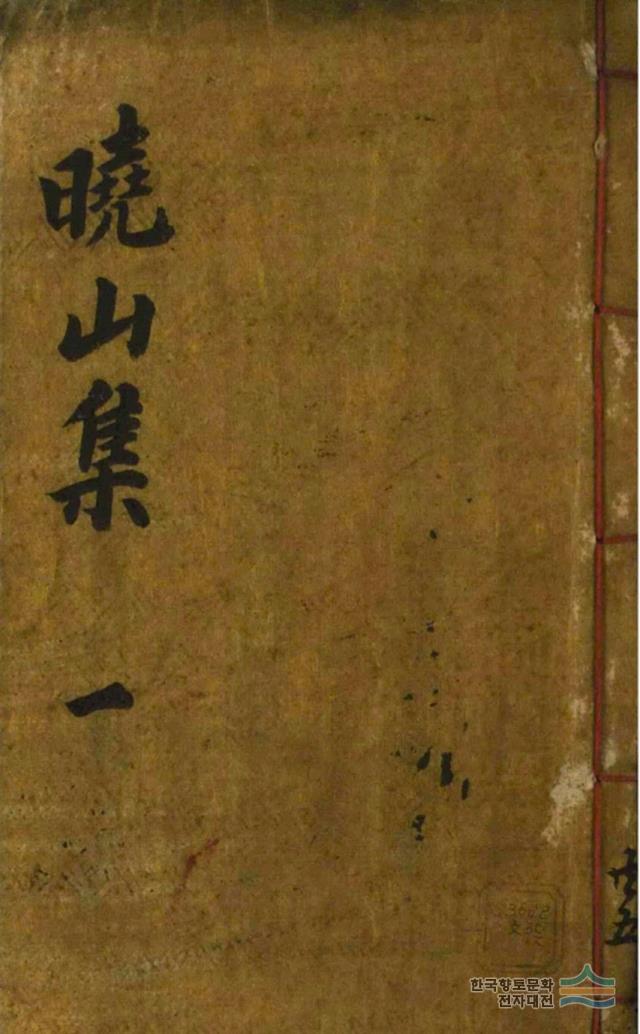 曉山集 一
한국향토문화
전자대전